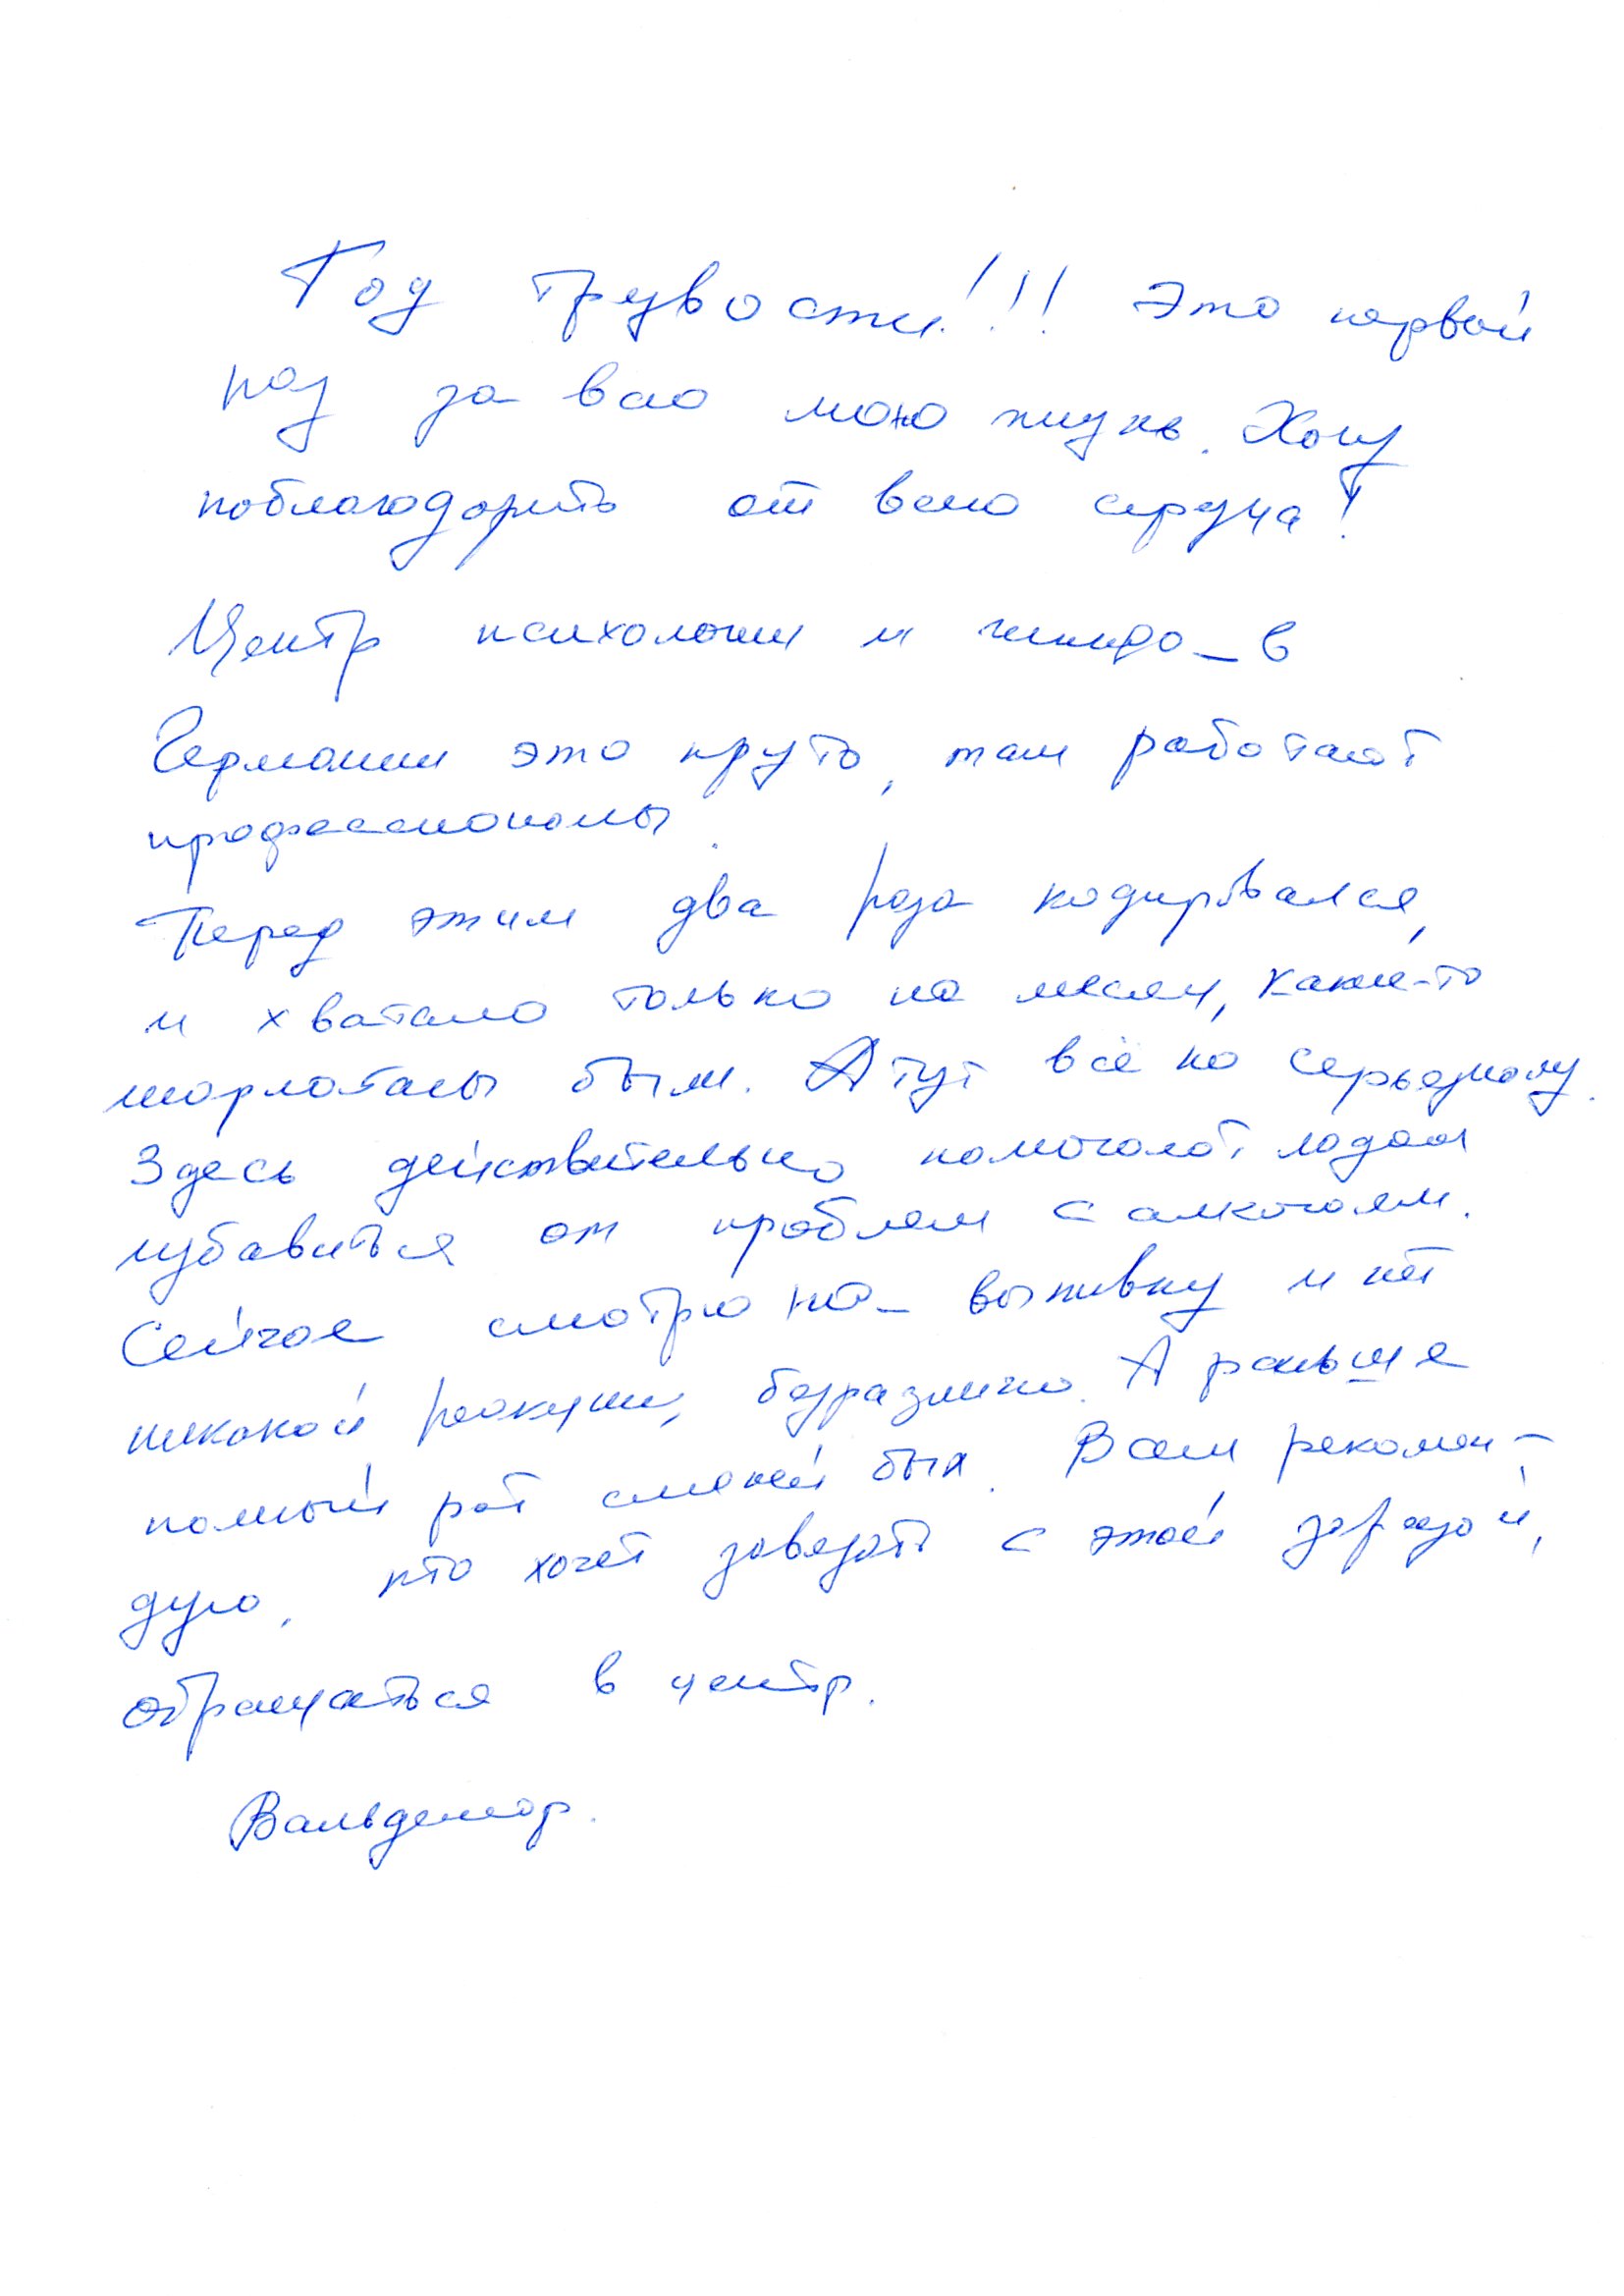 Год трезвости!!! Это первый
раз за всю мою жизнь. Хочу
поблагодарить от всего сердца!
Центр психологии и гипноза в
Германии это круто, там работают
профессионалы.
Перед этим два раза кодировался,
и хватало только на месяц, какие-то
шарлотаны были. А тут всё по серьезному.
Здесь действительно помогают людям
избавиться от проблем с алкоголем.
Сейчас смотрю на выпивку и нет
никакой реакции, безразлично. А раньше
полный рот слюней был. Всем рекомен-
дую, кто хочет завязать с этой заразой,
обращаться в центр.
Вальдемар.